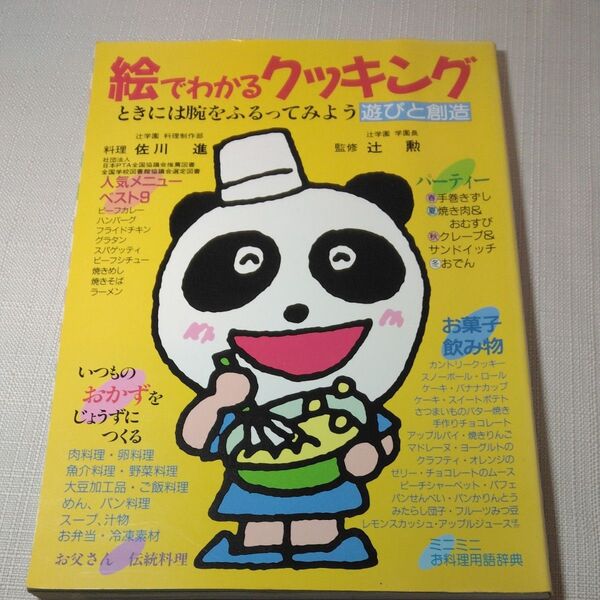 絵でわかるクッキング
ときには腕をふるってみよう 遊びと創造
辻学園 料理制作部
料理 佐川 進
辻学園 学園長
監修 辻 勲
社団法人
日本PTA全国協議会推薦図書
全国学校図書館協議会選定図書
人気メニュー
ベスト9
ビーフカレー
ハンバーグ
フライドチキン
グラタン
スパゲッティ
ビーフシチュー
焼きめし
焼きそば
ラーメン
パーティー
春手巻きずし
夏焼き肉&
おむすび
秋クレープ&
サンドイッチ
冬おでん
いつもの
おかずを
じょうずに
つくる
肉料理・卵料理
魚介料理・野菜料理
大豆加工品・ご飯料理
めん、パン料理
スープ、汁物
お弁当・冷凍素材
お父さん 伝統料理
お菓子
飲み物
カントリークッキー
スノーボール・ロール
ケーキ・バナナカップ
ケーキ・スイートポテト
さつまいものバター焼き
手作りチョコレート
アップルパイ・焼きりんご
マドレーヌ・ヨーグルトの
クラフティ・オレンジの
ゼリー・チョコレートのムース
ピーチシャーベット・パフェ
パンせんべい・パンかりんとう
みたらし団子・フルーツみつ豆
レモンスカッシュ・アップルジュース
ミニミニ
お料理用語辞典